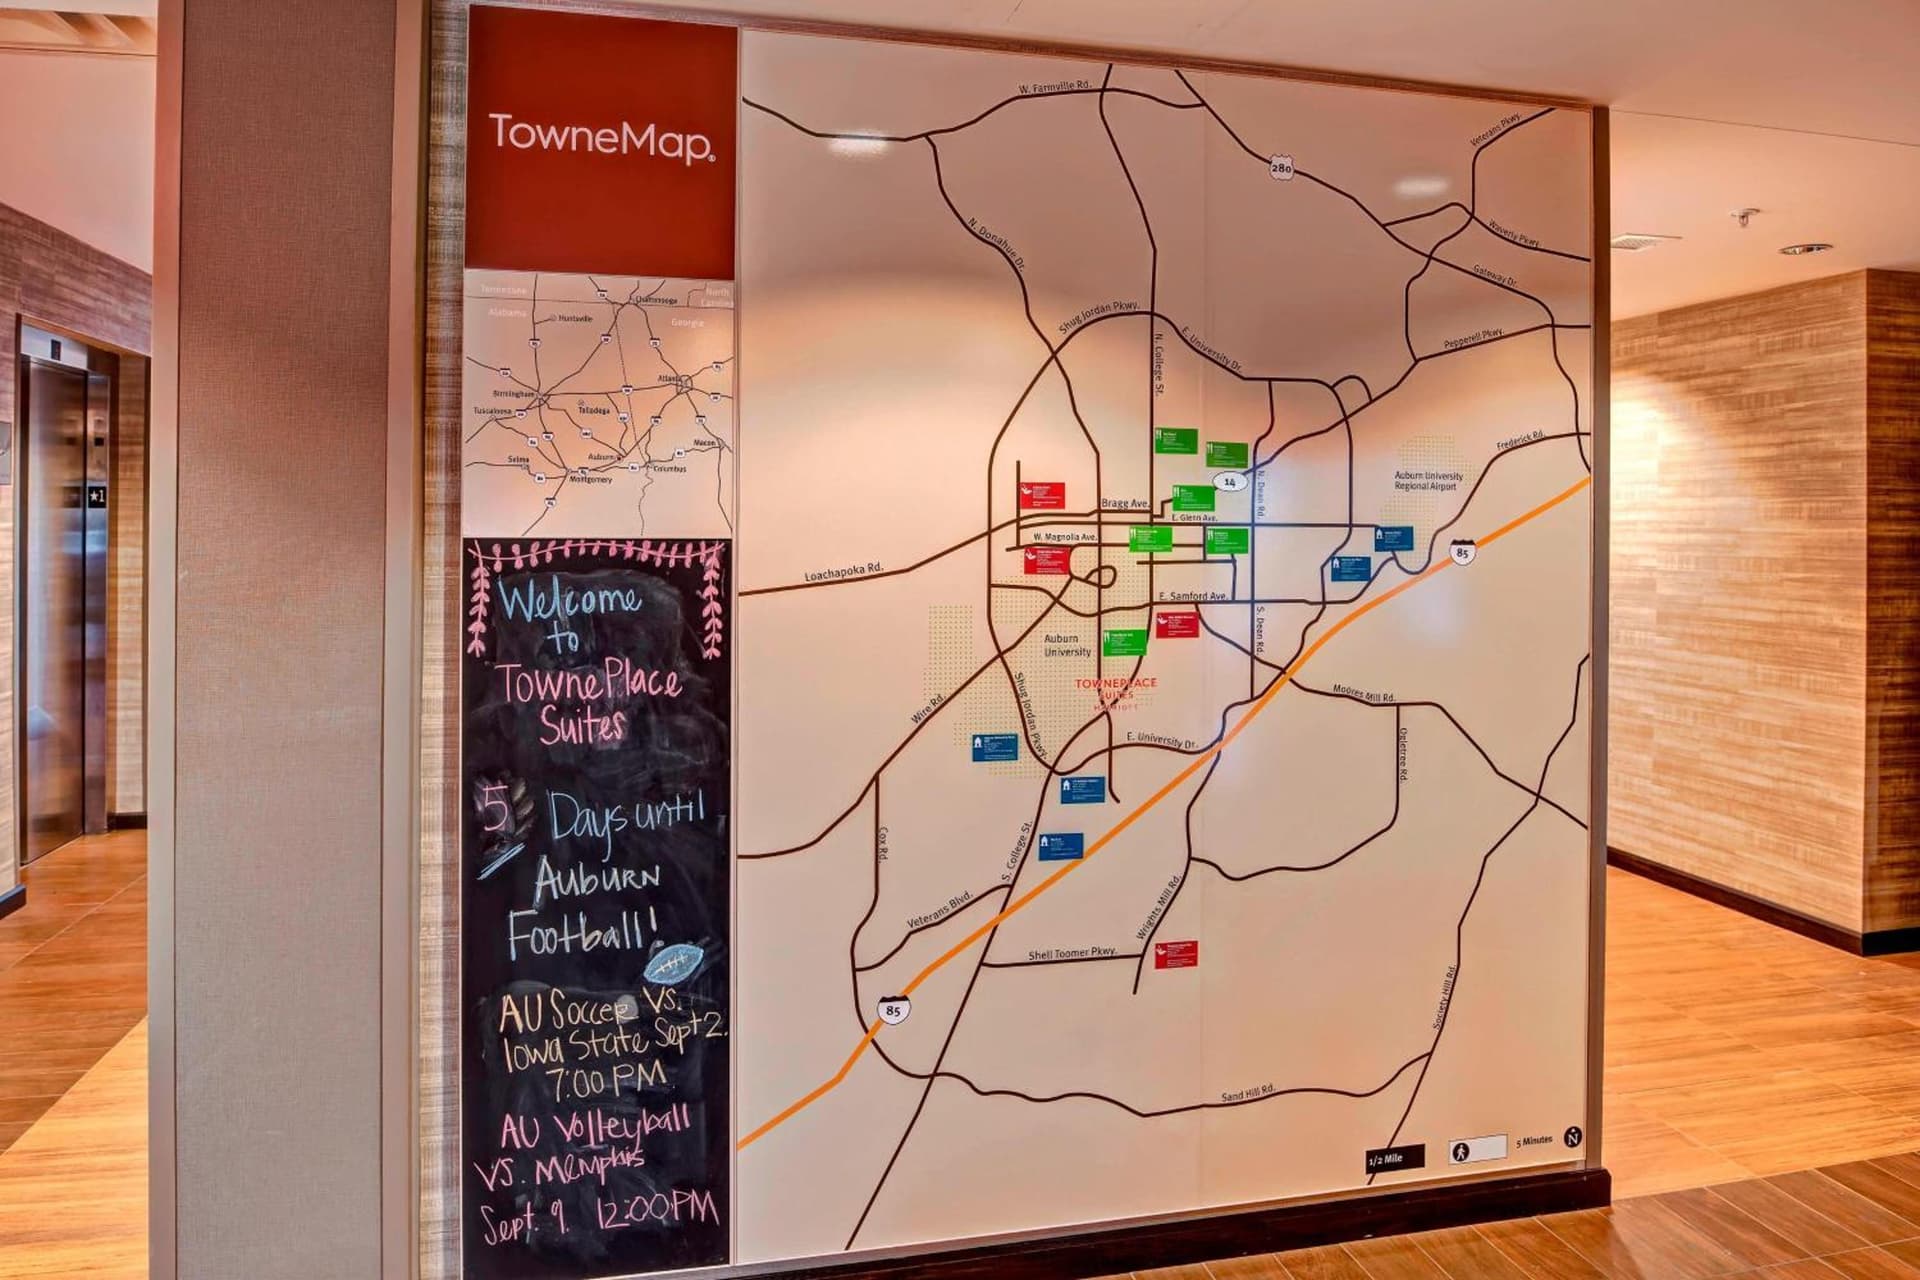 TowneMap®
Tennessee
North
Carolina
Chattanooga
Alabama
Huntsville
Georgia
Atlanta
Birmingham
Tuscaloosa
Talladega
Macon
Selma
Auburn
Columbus
Montgomery
Welcome
to
TownePlace
Suites
5 Days until
Auburn
Football!
AU Soccer Vs.
Iowa State Sept 2.
7:00 PM
AU Volleyball
VS. Memphis
Sept. 9. 12:00PM
W. Farmville Rd.
280
Veterans Pkwy.
Waverly Pkwy.
Gateway Dr.
N. Donahue Dr.
Shug Jordan Pkwy.
E. University Dr.
N. College St.
Pepperell Pkwy.
Frederick Rd.
Auburn University
Regional Airport
14
N. Dean Rd.
Bragg Ave.
E. Glenn Ave.
W. Magnolia Ave.
85
Loachapoka Rd.
E. Samford Ave.
S. Dean Rd.
Auburn
University
TOWNEPLACE
SUITES
MARRIOTT
Moores Mill Rd.
Wire Rd.
Shug Jordan Pkwy.
E. University Dr.
Ogletree Rd.
Cox Rd.
S. College St.
Veterans Blvd.
Wrights Mill Rd.
Shell Toomer Pkwy.
85
Society Hill Rd.
Sand Hill Rd.
1/2 Mile
5 Minutes
N
★1